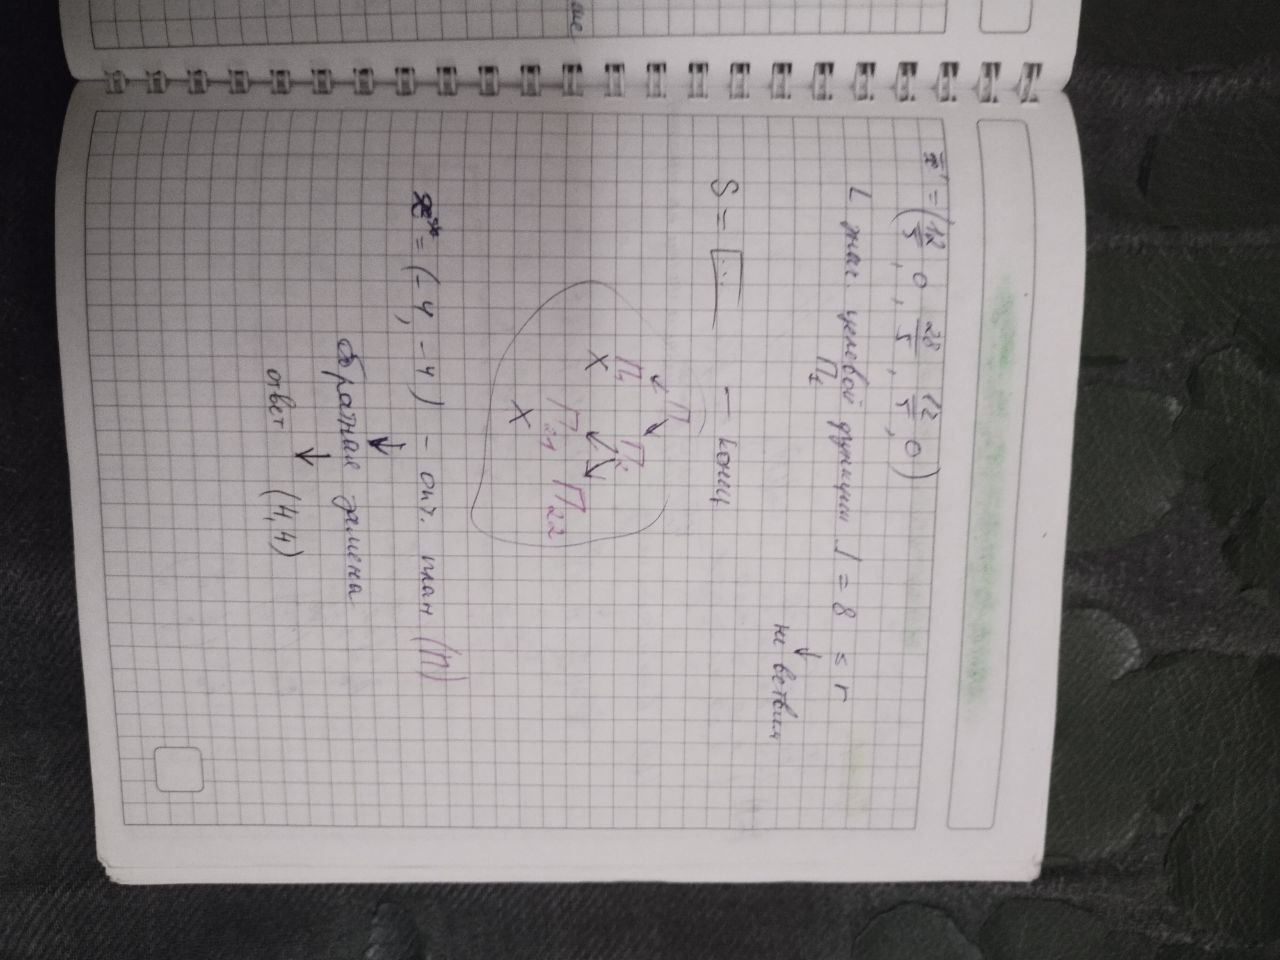 x̄¹ = (12/5, 0, 28/5, 12/5, 0)
L знач. целевой функции 1 = 8 ≤ r
П₁
не ветвим
S = [...] — конец
П
П₁ П₂
X
П₂₁ П₂₂
X
x** = (-4, -4) - опт. план (П)
обратная замена
ответ (4,4)